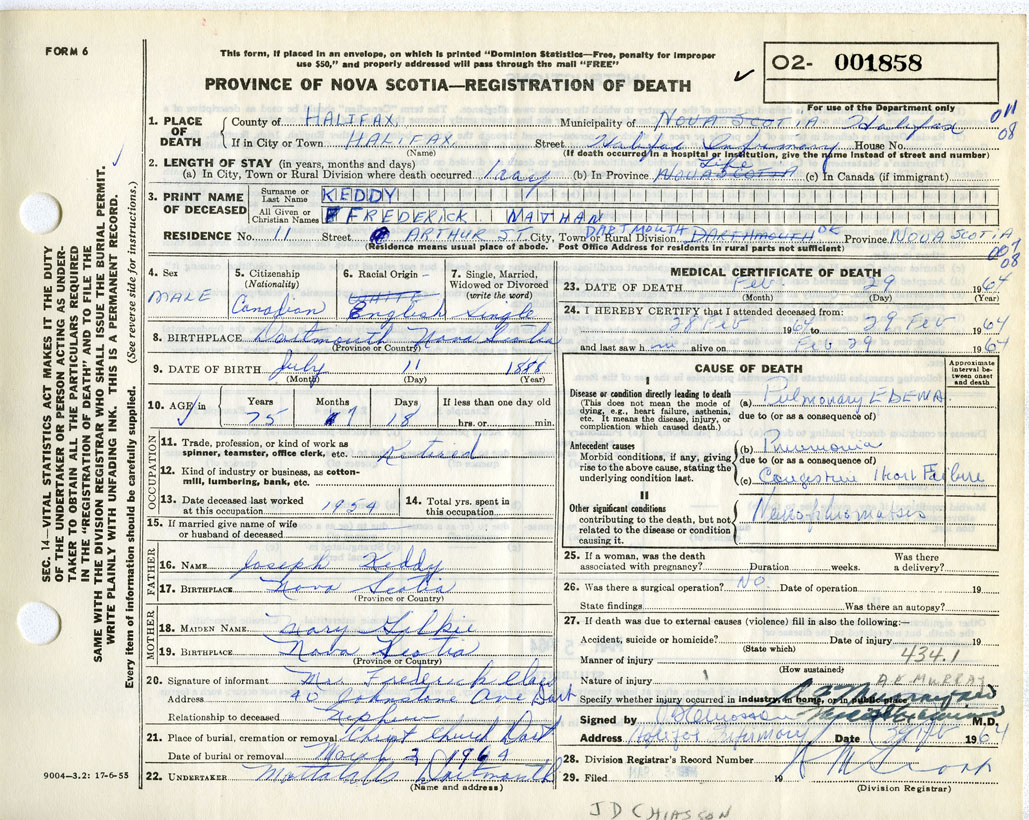 FORM 6
This form, if placed in an envelope, on which is printed "Dominion Statistics—Free, penalty for improper
use $50," and properly addressed will pass through the mail "FREE"
PROVINCE OF NOVA SCOTIA—REGISTRATION OF DEATH
✓
O2- 001858
For use of the Department only
011
08
1. PLACE OF DEATH
County of HALIFAX Municipality of NOVA SCOTIA Halifax
If in City or Town HALIFAX Street Halifax Infirmary House No.
(Name) (If death occurred in a hospital or institution, give the name instead of street and number)
2. LENGTH OF STAY (in years, months and days)
(a) In City, Town or Rural Division where death occurred 1 day (b) In Province NOVA SCOTIA Life (c) In Canada (if immigrant)
3. PRINT NAME OF DECEASED
Surname or Last Name KEDDY
All Given or Christian Names FREDERICK NATHAN
RESIDENCE No. 11 Street ARTHUR ST. City, Town or Rural Division DARTMOUTH DARTHMOUTH Province NOVA SCOTIA
(Residence means usual place of abode. Post Office Address for residents in rural parts not sufficient)
08
4. Sex
MALE
5. Citizenship
(Nationality)
Canadian
6. Racial Origin
WHITE
English
7. Single, Married,
Widowed or Divorced
(write the word)
Single
8. BIRTHPLACE Dartmouth Nova Scotia
(Province or Country)
9. DATE OF BIRTH July 11 1888
(Month) (Day) (Year)
10. AGE in Years Months Days If less than one day old
✓ 75 7 18 hrs. or min.
OCCUPATION
11. Trade, profession, or kind of work as
spinner, teamster, office clerk, etc. Retired
12. Kind of industry or business, as cotton-
mill, lumbering, bank, etc.
13. Date deceased last worked
at this occupation 1954
14. Total yrs. spent in
this occupation
15. If married give name of wife
or husband of deceased
FATHER
16. NAME Joseph Keddy
17. BIRTHPLACE Nova Scotia
(Province or Country)
MOTHER
18. MAIDEN NAME Mary Gilkie
19. BIRTHPLACE Nova Scotia
(Province or Country)
20. Signature of informant Mrs Frederick
Address 40 Johnstone Ave Dart
Relationship to deceased Nephew
21. Place of burial, cremation or removal Christ Church Dart
Date of burial or removal March 2 1964
22. UNDERTAKER Mattatalls Dartmouth
(Name and address)
MEDICAL CERTIFICATE OF DEATH
23. DATE OF DEATH Feb. 29 1964
(Month) (Day) (Year)
24. I HEREBY CERTIFY that I attended deceased from:
28 Feb 1964 to 29 Feb 1964
and last saw h im alive on Feb 29 1964
CAUSE OF DEATH
Approximate
interval be-
tween onset
and death
I
Disease or condition directly leading to death
(This does not mean the mode of
dying, e.g., heart failure, asthenia,
etc. It means the disease, injury, or
complication which caused death.)
(a) Pulmonary EDEMA
due to (or as a consequence of)
Antecedent causes
Morbid conditions, if any, giving
rise to the above cause, stating the
underlying condition last.
(b) Pneumonia
due to (or as a consequence of)
(c) Congestive Heart Failure
II
Other significant conditions
contributing to the death, but not
related to the disease or condition
causing it.
25. If a woman, was the death Was there
associated with pregnancy? Duration weeks. a delivery?
26. Was there a surgical operation? NO. Date of operation 19
State findings Was there an autopsy?
27. If death was due to external causes (violence) fill in also the following:—
Accident, suicide or homicide? Date of injury 19
(State which)
Manner of injury 434.1
(How sustained)
Nature of injury A E MURRAY
Specify whether injury occurred in industry, in home, or in public place
Signed by M.D.
Address Halifax Infirmary Date 29 Feb 1964
28. Division Registrar's Record Number
29. Filed 19
(Division Registrar)
J D CHIASSON
SEC. 14—VITAL STATISTICS ACT MAKES IT THE DUTY
OF THE UNDERTAKER OR PERSON ACTING AS UNDER-
TAKER TO OBTAIN ALL THE PARTICULARS REQUIRED
IN THE "REGISTRATION OF DEATH" AND TO FILE THE
SAME WITH THE DIVISION REGISTRAR WHO SHALL ISSUE THE BURIAL PERMIT.
WRITE PLAINLY WITH UNFADING INK. THIS IS A PERMANENT RECORD.
Every item of information should be carefully supplied. (See reverse side for instructions.)
9004—3.2: 17-6-55